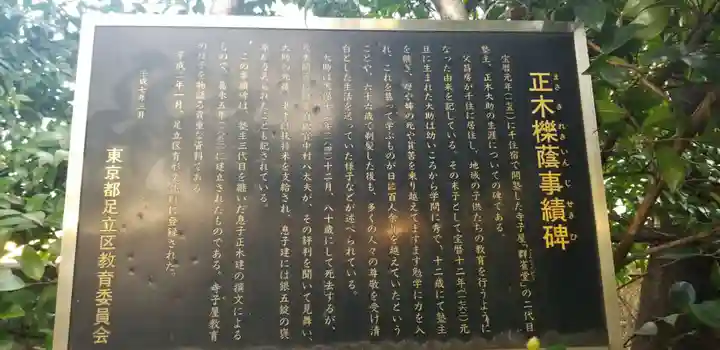 正木櫟蔭事績碑
まさ き れき いん じ せき ひ
宝暦元年(一七五一)に千住宿で開塾した寺子屋「群雀堂」の二代目
塾主、正木大助の生涯についての碑である。
父昌房が千住に居住し、地域の子供たちの教育を行うように
なった由来を記している。その末子として宝暦十二年(一七六二)元
旦に生まれた大助は幼いころから学問に秀で、十二歳にて塾主
を継ぎ、母や姉の死や貧苦を乗り越えてますます勉学に力を入
れ、これを慕って学ぶものが日に百人余りを越えていたという
ことや、六十六歳で剃髪した後も、多くの人々の尊敬を受け清
白とした生活を送っていた様子などが述べられている。
大助は天保十二年(一八四一)十二月、八十歳にして死去するが、
中村八太夫が、その評判を聞いて見舞い、
大助の死後、妻に扶持米を支給され、息子建には銀五錠の褒
章が与えられたことも記されている。
この事績碑は、塾主三代目を継いだ息子正木建の撰文による
もので、嘉永五年(一八五二)に建立されたものである。寺子屋教育
の様子を物語る貴重な資料である
平成二年一月、足立区有形文化財に登録された。
平成七年三月
東京都足立区教育委員会